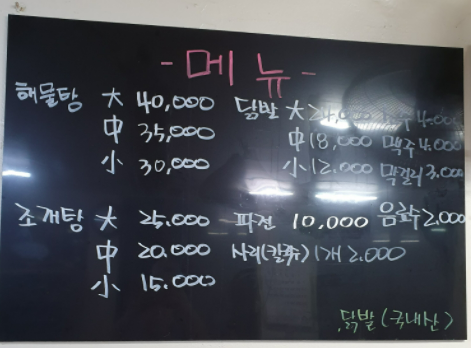 - 메뉴 -
해물탕 大 40,000
中 35,000
小 30,000
조개탕 大 25.000
中 20.000
小 15.000
닭발 大
中 18,000
小 12.000
파전 10,000
사리(칼국수) 1개 2.000
4.000
맥주 4.000
막걸리 3.000
음료수 2.000
닭발 (국내산)